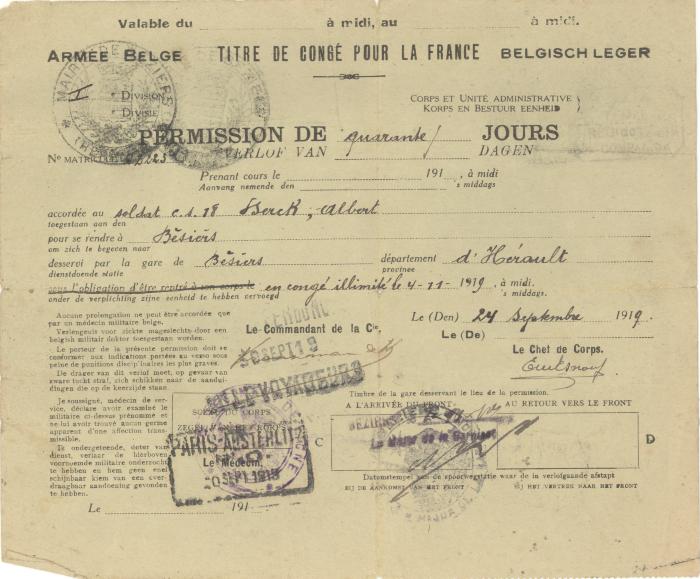 Valable du à midi, au à midi.
ARMÉE BELGE TITRE DE CONGÉ POUR LA FRANCE BELGISCH LEGER
DIVISION
DIVISIE
CORPS ET UNITÉ ADMINISTRATIVE
KORPS EN BESTUUR EENHEID
PERMISSION DE quarante JOURS
VERLOF VAN DAGEN
No MATRIC
Prenant cours le 191 , à midi
Aanvang nemende den 's middags
accordée au soldat c.s. 18 Berck, Albert
toegestaan aan den
pour se rendre à Bésiérs
om zich te begeven naar
desservi par la gare de Bésiérs département d'Hérault
dienstdoende statie provincie
sous l'obligation d'être rentré à son corps le en congé illimité le 4-11-1919 , à midi.
onder de verplichting zijne eenheid te hebben vervoegd 's middags.
Aucune prolongation ne peut être accordée que par un médecin militaire belge.
Verlengeuis voor ziekte mageslechts door een belgish militair doktor toegestaan worden.
Le porteur de la présente permission doit se conformer aux indications portées au verso sous peine de punitions disciplinaires les plus graves.
De drager van dit verlof moet, op gevaar van zware tucht straf, zich schikken naar de aanduidingen die op de keerzijde staan.
Je soussigné, médecin de service, déclare avoir examiné le militaire ci-dessus prénommé et ne lui avoir trouvé aucun germe apparent d'une affection transmissible.
Te ondergeteende, deter van dienst, verlaar de hierboven voornoemde militaire onderzocht te hebben en hem geen noet schijnbaar kiem van een overdraagbaar aandoening gevonden te hebben.
Le 191
Le Commandant de la Cie,
30 SEPT 19
SCEAU DU CORPS
PARIS-AUSTERLITZ
Le Médecin,
30 SEPT 1919
Le (Den) 24 Septembre 1919
Le (De)
Le Chef de Corps.
Timbre de la gare desservant le lieu de la permission.
A L'ARRIVÉE DU FRONT AU RETOUR VERS LE FRONT
C D
BEZIERS
Datumstempel van de spoorwegstatie waar de in verlofgaande afstapt
BIJ DE AANKOMST VAN HET FRONT BIJ HET VERTREK NAAR HET FRONT